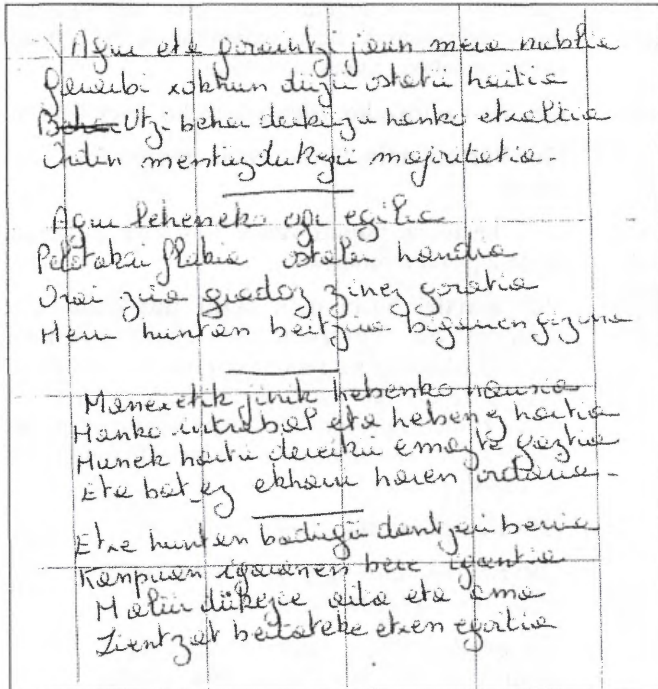 Agur eta goraintzi jaun mera nublia
Gerarbi xokhun düzü ostatü haitia
Utzi behar deiküzü hanko etxaltia
Ordin mentüz dukezü majoritatia.
Agur leheneko ogi egilia
Pelotakari flakia ostaler handia
Orai züa gradoz zinez goratia
Herri huntan beitzira bigerren gizuna
Manexetik jinik hebenko nausia
Hanko intrabat eta hebenez haitia
Hunek haitü dereikü emazte gaztia
Eta bat ez ekharri haren ordaria.
Etxe huntan badügü dantzari berria
Kanpuan igaranen bere igantia
Malür dükezie aita eta ama
Zientzat beitateke etxen egoitia